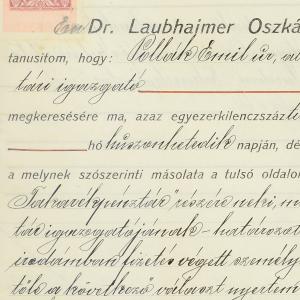 Én Dr. Laubhajmer Oszká
tanusitom, hogy: Pollák Emil úr, a
tári igazgató
megkeresésére ma, azaz egyezerkilenczszázt
hó huszonhetedik napján, dé
a melynek szószerinti másolata a tulsó oldalo
Takarékpénztár" részére neki, m
tár igazgatójának - határozot
irodámban fizetés végett személy
tőle a következő választ nyertem